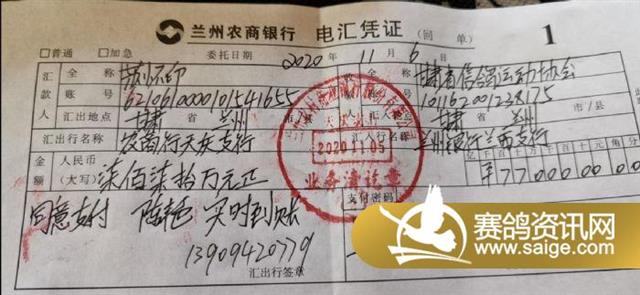 兰州农商银行 电汇凭证（回单） 1
□普通 □加急 委托日期 2020年11月6日
汇款人 全称 收款人 全称 甘肃省信鸽运动协会
账号 6210610000101541655 账号 101162001238175
汇出地点 甘肃省 兰州 甘肃省 兰州 市/县
汇出行名称 农商行天庆支行 汇入行名称 兰州银行兴西支行
金额 人民币（大写） 柒佰柒拾万元正 亿千百十万千百十元角分
¥770000000
2020.11.05
业务清讫章
支付密码
同意支付 陈艳 实时到账
13909420779
汇出行签章
赛鸽资讯网
www.saige.com